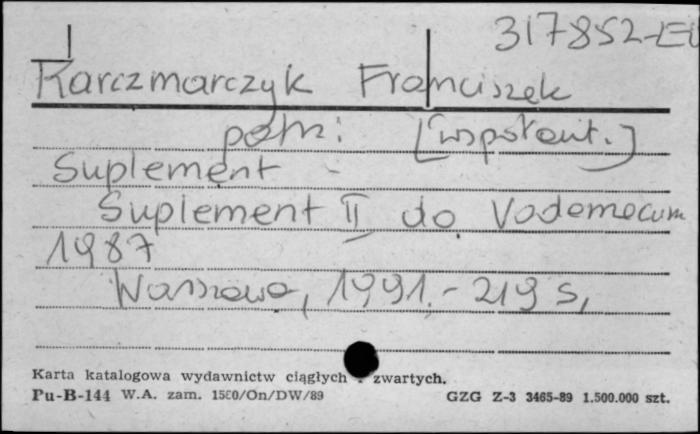 317852-EU
Karczmarczyk Franciszek
patrz: [współaut.]
Suplement -
Suplement II do Vademecum
1987
Warszawa, 1991. - 219 s,
Karta katalogowa wydawnictw ciągłych i zwartych.
Pu-B-144 W.A. zam. 1580/On/DW/89 GZG Z-3 3465-89 1.500.000 szt.